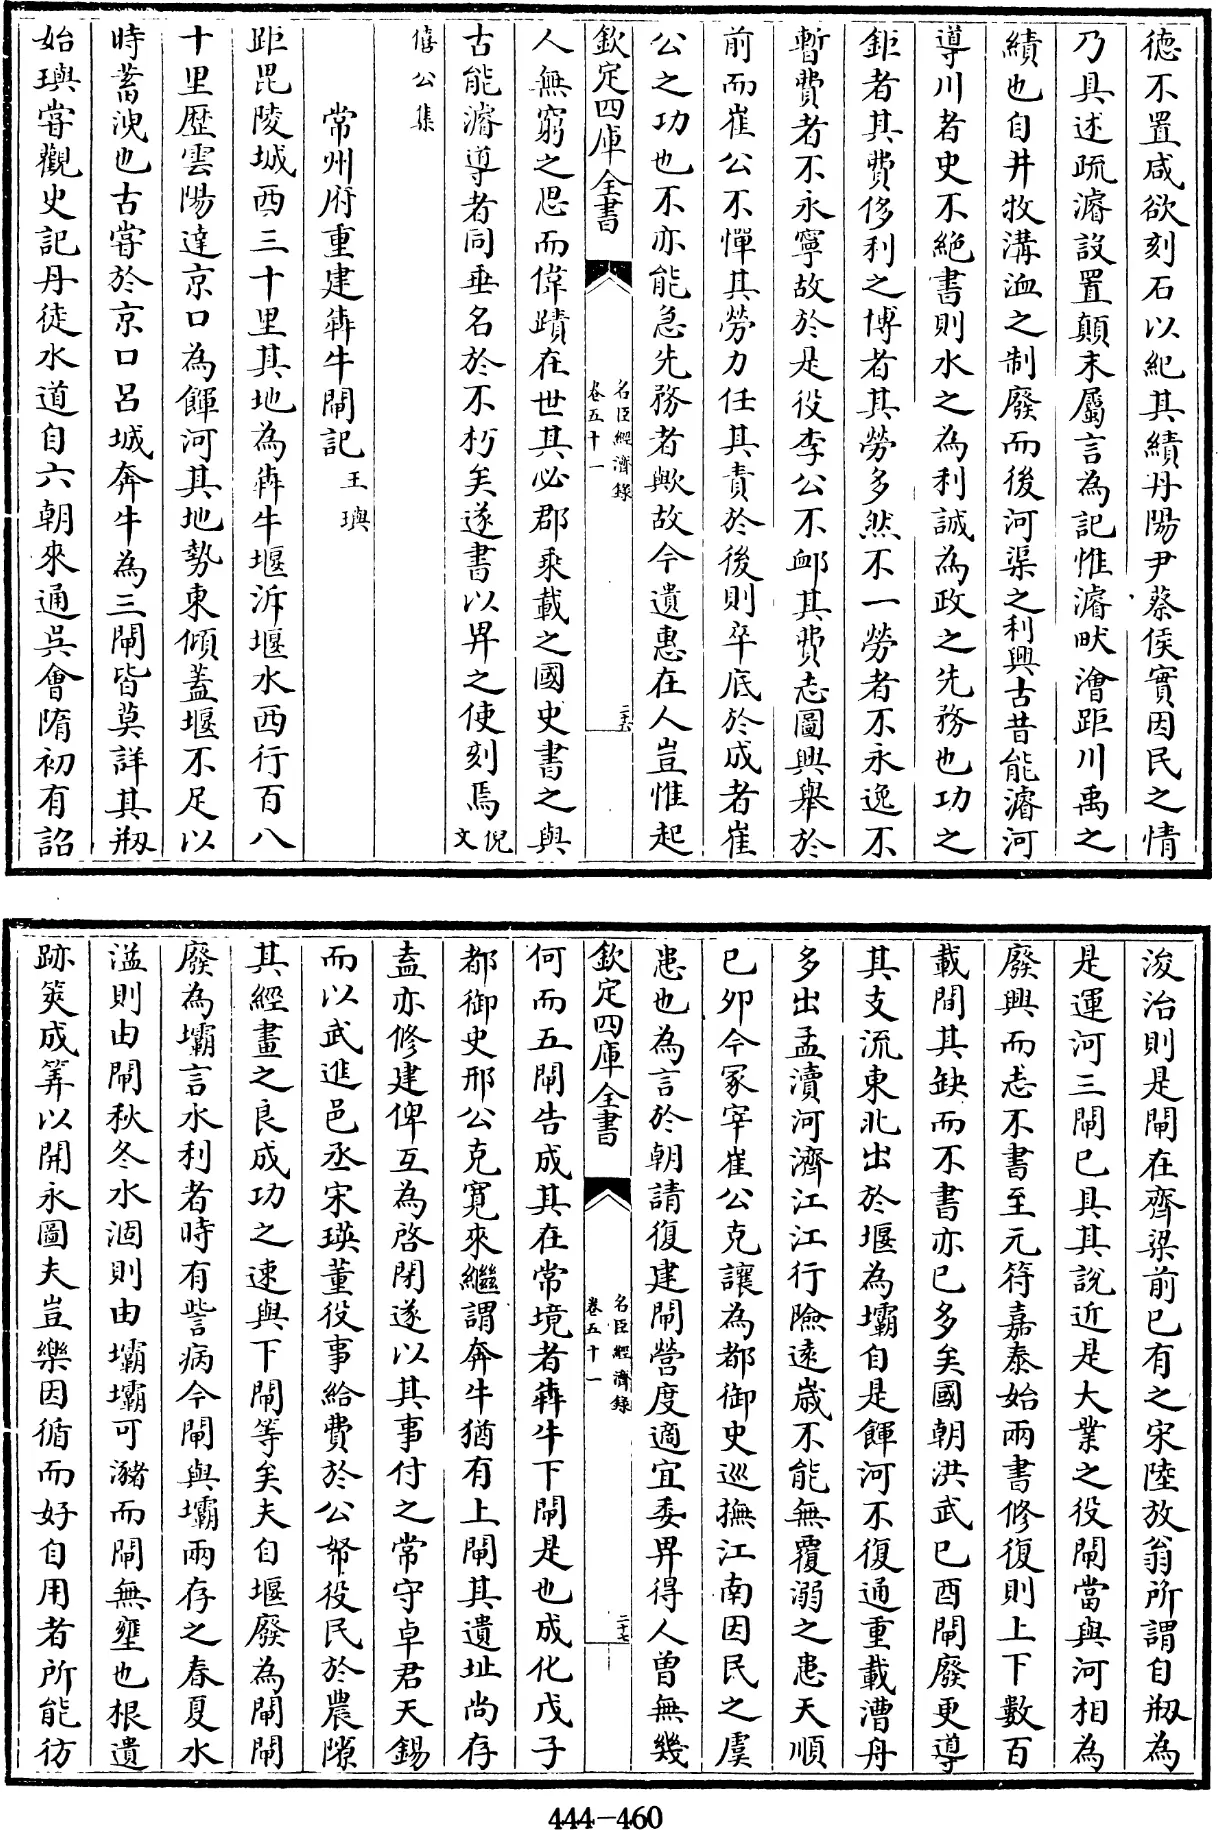 德不置咸欲刻石以紀其績丹陽尹蔡侯實因民之情
乃具述疏濬設置顛末屬言為記惟濬畎澮距川禹之
績也自井牧溝洫之制廢而後河渠之利興古昔能濬河
導川者史不絶書則水之為利誠為政之先務也功之
鉅者其費侈利之博者其勞多然不一勞者不永逸不
暫費者不永寧故於是役李公不衈其費志圖興舉於
前而崔公不憚其勞力任其責於後則卒底於成者崔
公之功也不亦能急先務者歟故今遺惠在人豈惟起
欽定四庫全書
名臣經濟錄
卷五十一
二十六
人無窮之思而偉蹟在世其必郡乘載之國史書之與
古能濬導者同垂名於不朽矣遂書以畀之使刻焉倪文
僖公集
常州府重建犇牛閘記王㻞
距毘陵城西三十里其地為犇牛堰泝堰水西行百八
十里歴雲陽達京口為餫河其地勢東傾蓋堰不足以
時蓄洩也古嘗於京口呂城奔牛為三閘皆莫詳其剏
始㻞嘗觀史記丹徒水道自六朝來通吳會隋初有詔
浚治則是閘在齊梁前已有之宋陸放翁所謂自剏為
是運河三閘已具其說近是大業之役閘當與河相為
廢興而志不書至元符嘉泰始兩書修復則上下數百
載間其缺而不書亦已多矣國朝洪武已酉閘廢更導
其支流東北出於堰為壩自是餫河不復通重載漕舟
多出孟瀆河濟江江行險遠歲不能無覆溺之患天順
已夘今冢宰崔公克讓為都御史巡撫江南因民之虞
患也為言於朝請復建閘營度適宜委畀得人曾無幾
欽定四庫全書
名臣經濟錄
卷五十一
二十七
何而五閘告成其在常境者犇牛下閘是也成化戊子
都御史邢公克寛來繼謂奔牛猶有上閘其遺址尚存
盍亦修建俾互為啓閉遂以其事付之常守卓君天錫
而以武進邑丞宋瑛董役事給費於公帑役民於農隙
其經畫之良成功之速與下閘等矣夫自堰廢為閘閘
廢為壩言水利者時有訾病今閘與壩兩存之春夏水
溢則由閘秋冬水涸則由壩壩可瀦而閘無壅也根遺
跡筴成筭以開永圖夫豈樂因循而好自用者所能彷
444-460